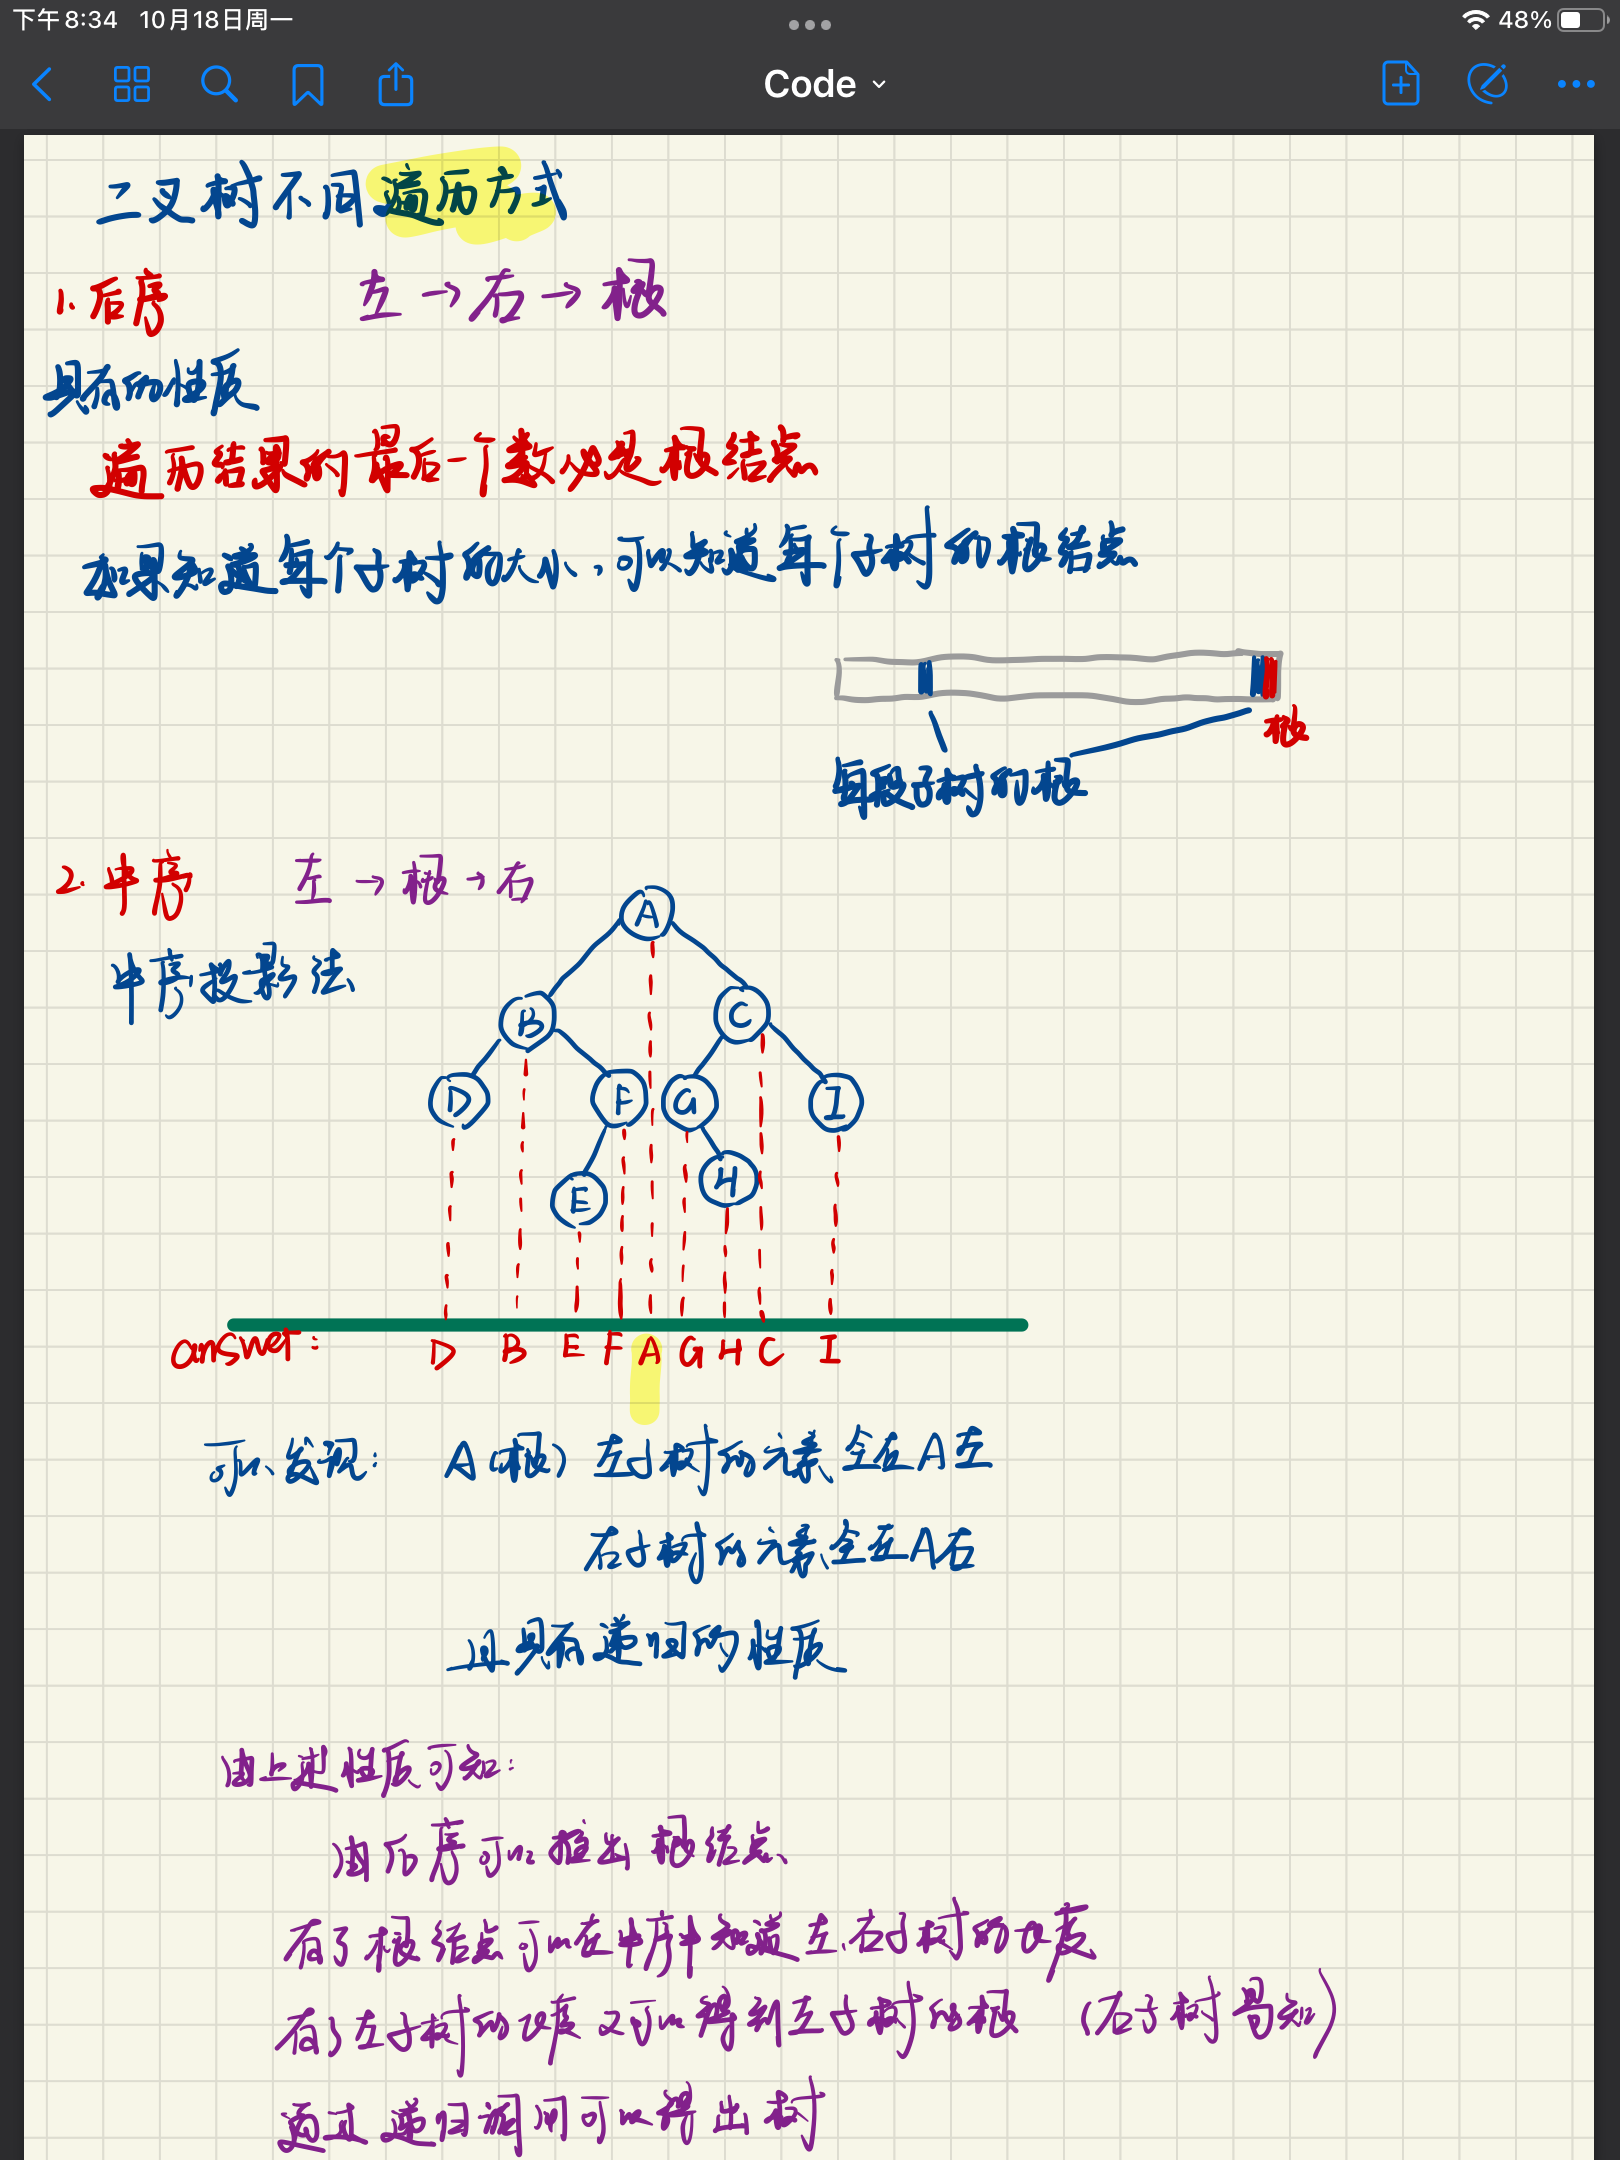 下午8:34 10月18日周一
48%
Code
二叉树不同遍历方式
1.后序 左→右→根
具有的性质
遍历结果的最后一个数必是根结点
如果知道每个子树的大小,可以知道每个子树的根结点
根
每段子树的根
2.中序 左→根→右
中序投影法
A
B
C
D
F
G
I
E
H
answer: D B E F A G H C I
可以发现: A(根) 左子树的元素全在A左
右子树的元素全在A右
且具有递归的性质
由上述性质可知:
由后序可以推出根结点
有了根结点可以在中序中知道左右子树的长度
有了左子树的长度又可以得到左子树的根 (右子树易知)
通过递归调用可以得出树